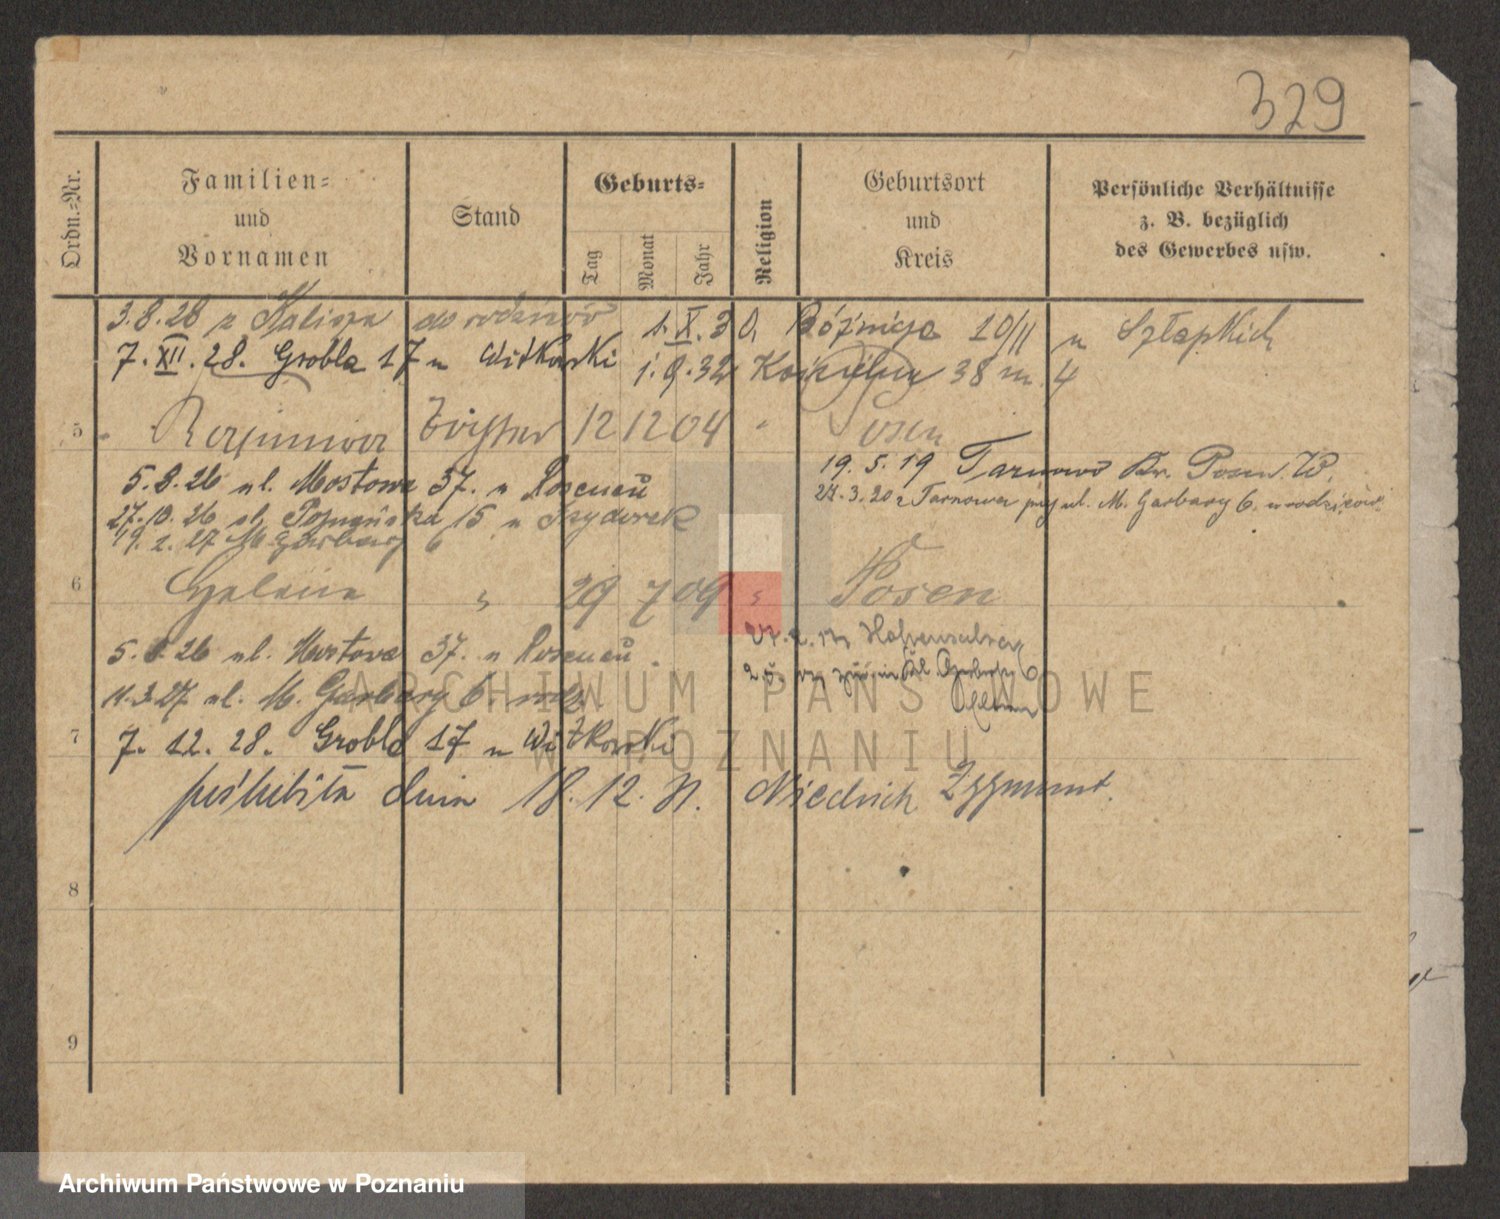 329
Ordn.-Nr.
Familien-
und
Vornamen
Stand
Geburts-
Tag
Monat
Jahr
Religion
Geburtsort
und
Kreis
Persönliche Verhältnisse
z. B. bezüglich
des Gewerbes usw.
3.8.28 z Kalisza do rodziców 1.X.30. Różnicja 10/11 u Szłapkich
7.XII.28. Grobla 17 u Witkowski 1.9.32 38 m. 4
5 12 12 04 " Posen
5.8.26 ul. Mostowa 37. u Rosenau
19.5.19 Tarnowo Kr. Posen W.
27.10.26 ul. Poznańska 15 u
3.20 z Tarnowa ul. M. Garbary 6. u rodziców
19.2.27 M. Garbary 6
6 Helene " 29 7 09 " Posen
5.8.26 ul. Mostowa 37. u Rosenau.
Hohensalza
11.3.27 ul. M. Garbary 6.
7 7.12.28. Grobla 17 u Witkowski
dnia 18.12.31. Niedrich Zygmunt.
8
9
ARCHIWUM PAŃSTWOWE
W POZNANIU
Archiwum Państwowe w Poznaniu